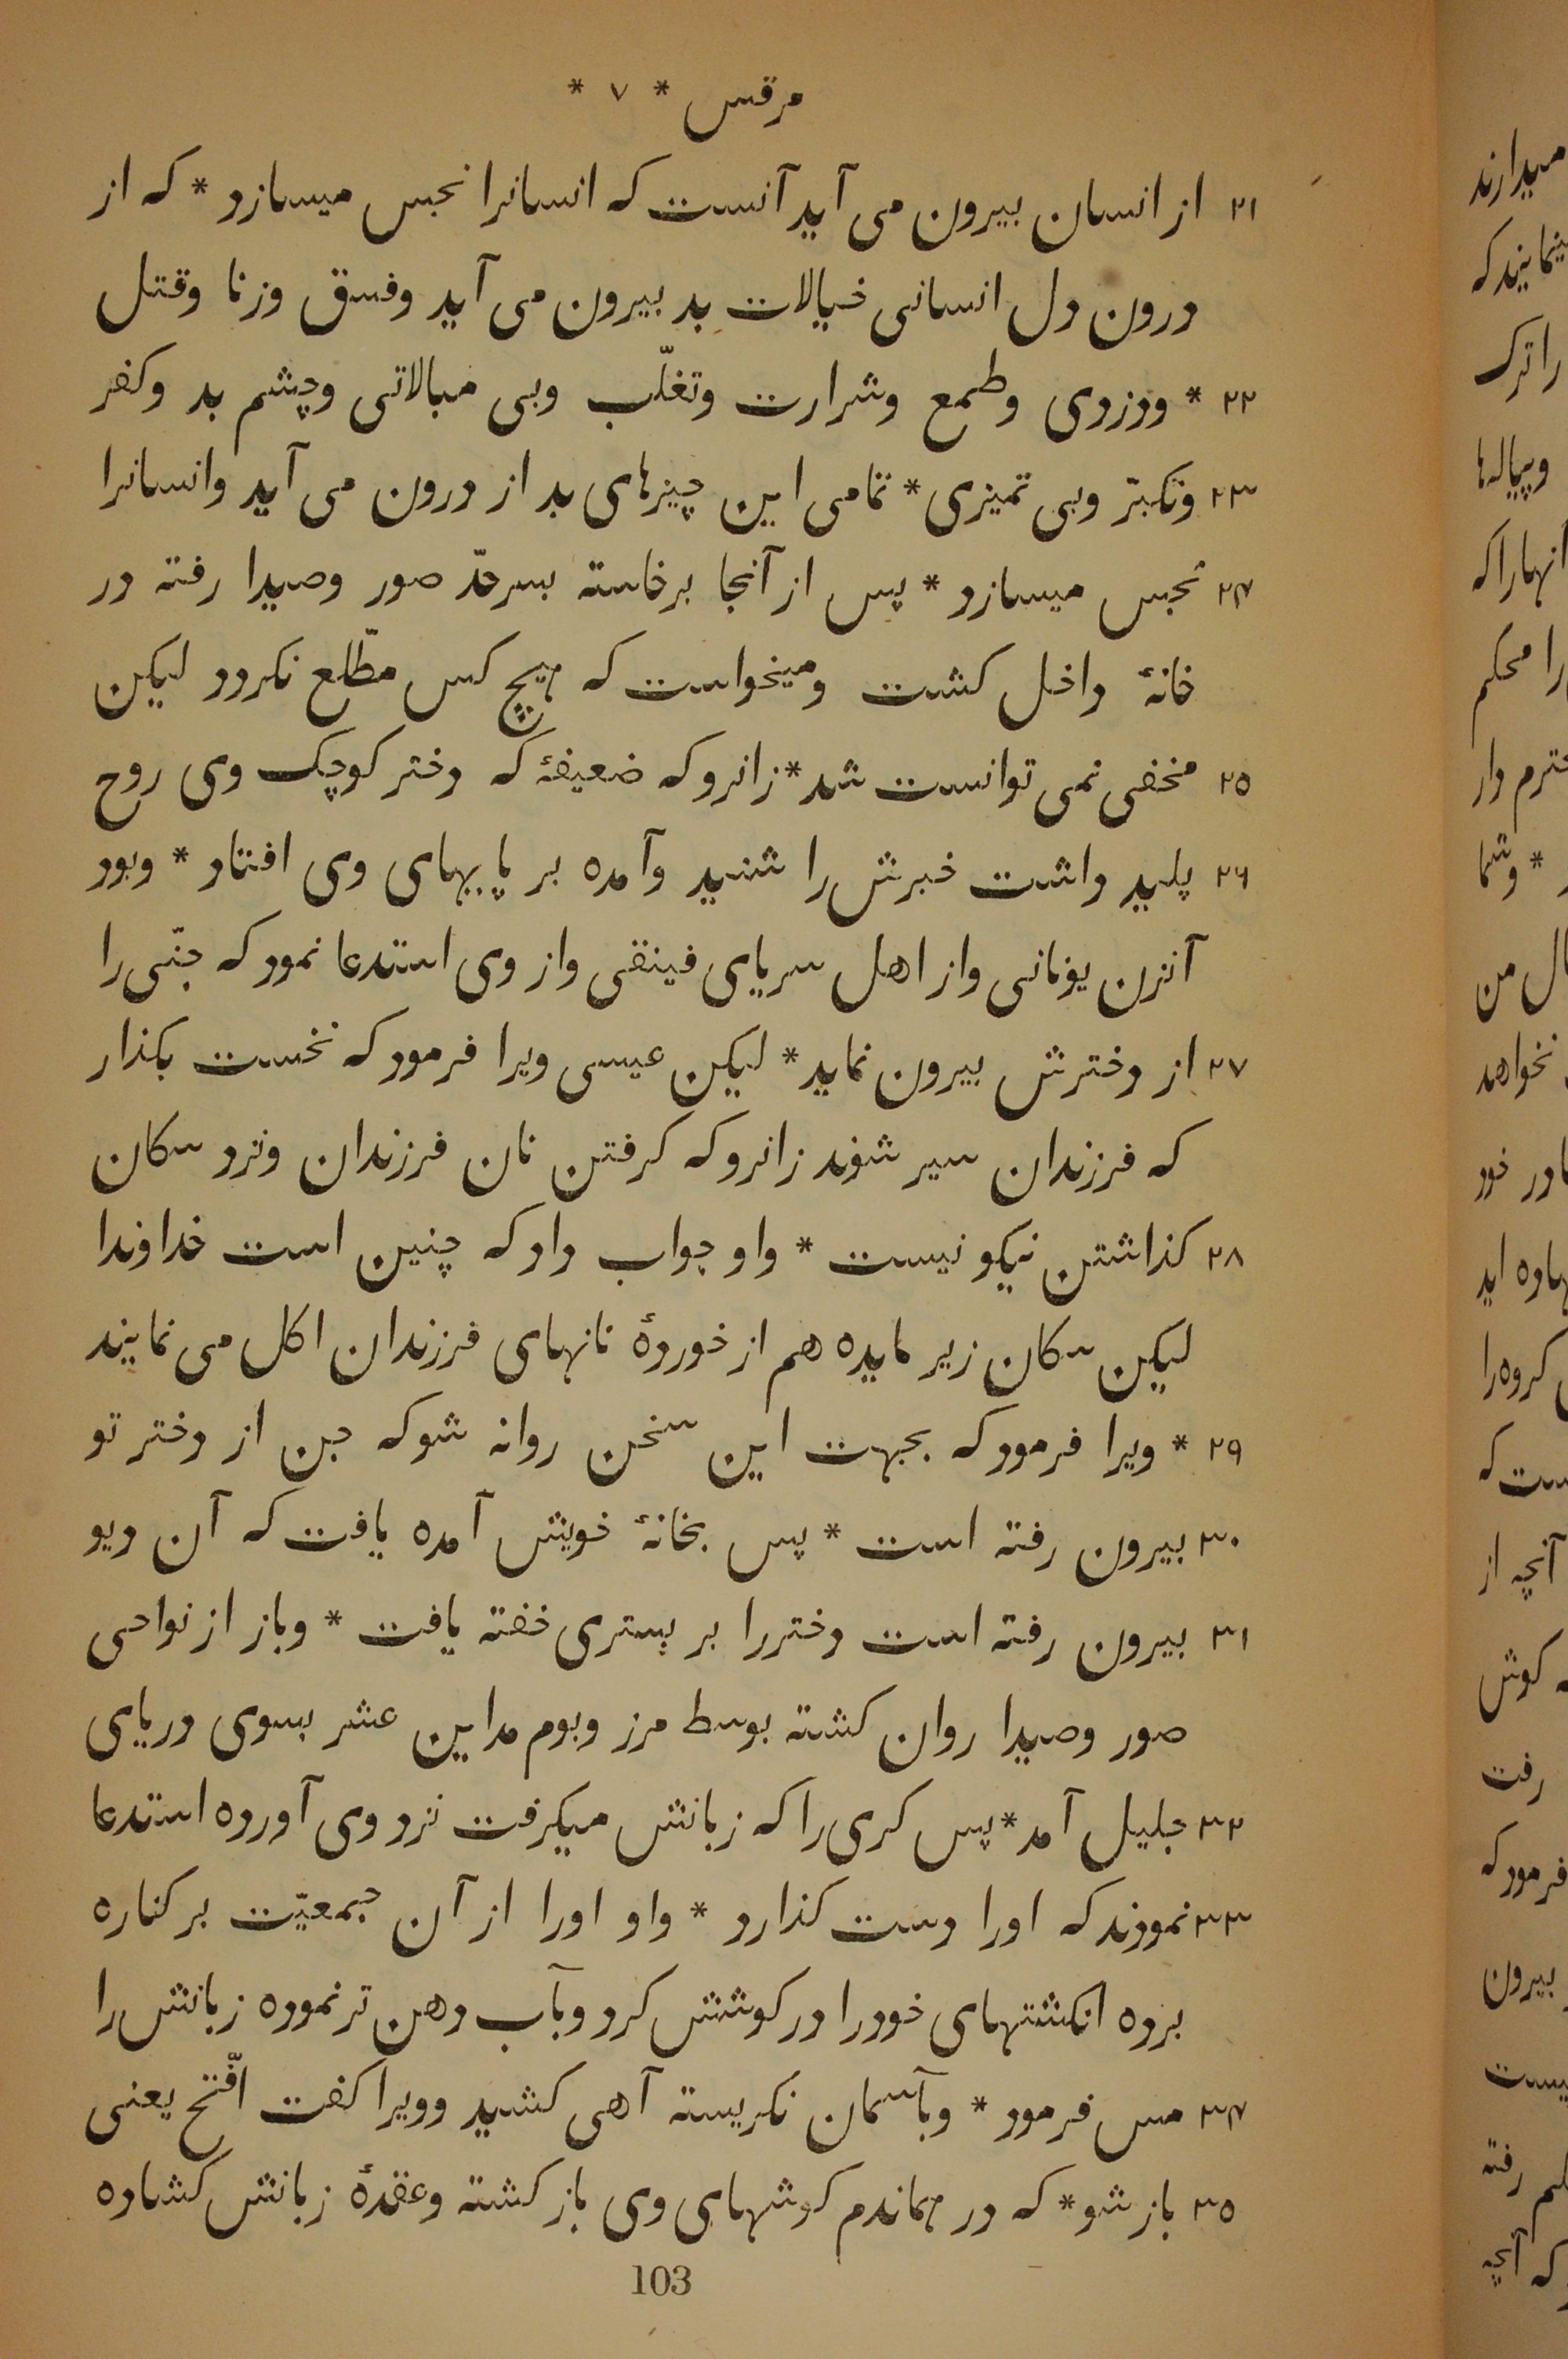 مرقس * ۷ *
۲۱ از انسان بیرون می آید آنست که انسانرا نجس میسازد * که از
درون دل انسانی خیالات بد بیرون می آید وفسق وزنا وقتل
۲۲ * ودزدی وطمع وشرارت وتغلّب وبی مبالاتی وچشم بد وکفر
۲۳ وتکبّر وبی تمیزی * تمامی این چیزهای بد از درون می آید وانسانرا
۲۴ نجس میسازد * پس از آنجا برخاسته بسرحدّ صور وصیدا رفته در
خانهٔ داخل کشت ومیخواست که هیچ کس مطّلع نکردد لیکن
۲۵ مخفی نمی توانست شد * زانروکه ضعیفهٔ که دختر کوچک وی روح
۲۶ پلید داشت خبرش را شنید وآمده بر پایهای وی افتاد * وبود
آنزن یونانی واز اهل سریای فینقی واز وی استدعا نمود که جنّی را
۲۷ از دخترش بیرون نماید * لیکن عیسی ویرا فرمود که نخست بکذار
که فرزندان سیر شوند زانروکه کرفتن نان فرزندان ونزد سکان
۲۸ کذاشتن نیکو نیست * واو جواب داد که چنین است خداوندا
لیکن سکان زیر مایده هم از خوردهٔ نانهای فرزندان اکل می نمایند
۲۹ * ویرا فرمود که بجهت این سخن روانه شو که جن از دختر تو
۳۰ بیرون رفته است * پس بخانهٔ خویش آمده یافت که آن دیو
۳۱ بیرون رفته است دختررا بر بستری خفته یافت * وباز از نواحی
صور وصیدا روان کشته بوسط مرز وبوم مداین عشر بسوی دریای
۳۲ جلیل آمد * پس کری را که زبانش میکرفت نزد وی آورده استدعا
۳۳ نمودند که اورا دست کذارد * واو اورا از آن جمعیّت بر کناره
برده انکشتهای خودرا در کوشش کرد وبآب دهن تر نموده زبانش را
۳۴ مس فرمود * وبآسمان نکریسته آهی کشید وویرا کفت افّتح یعنی
۳۵ باز شو * که در هماندم کوشهای وی باز کشته وعقدهٔ زبانش کشاده
103
میدارند
را ترک
وپیالها
آنهارا که
را محکم
* وشما
نخواهد
آنچه از
کوش
رفت
فرمود که
بیرون
رفته
که آنچه